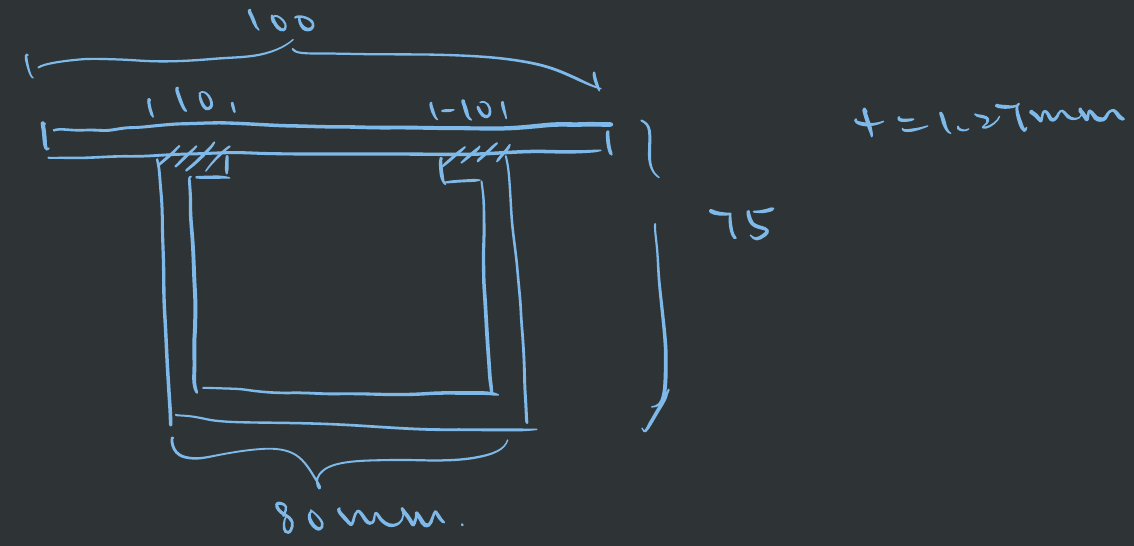 100
10
10
t = 1.27mm
75
80mm.